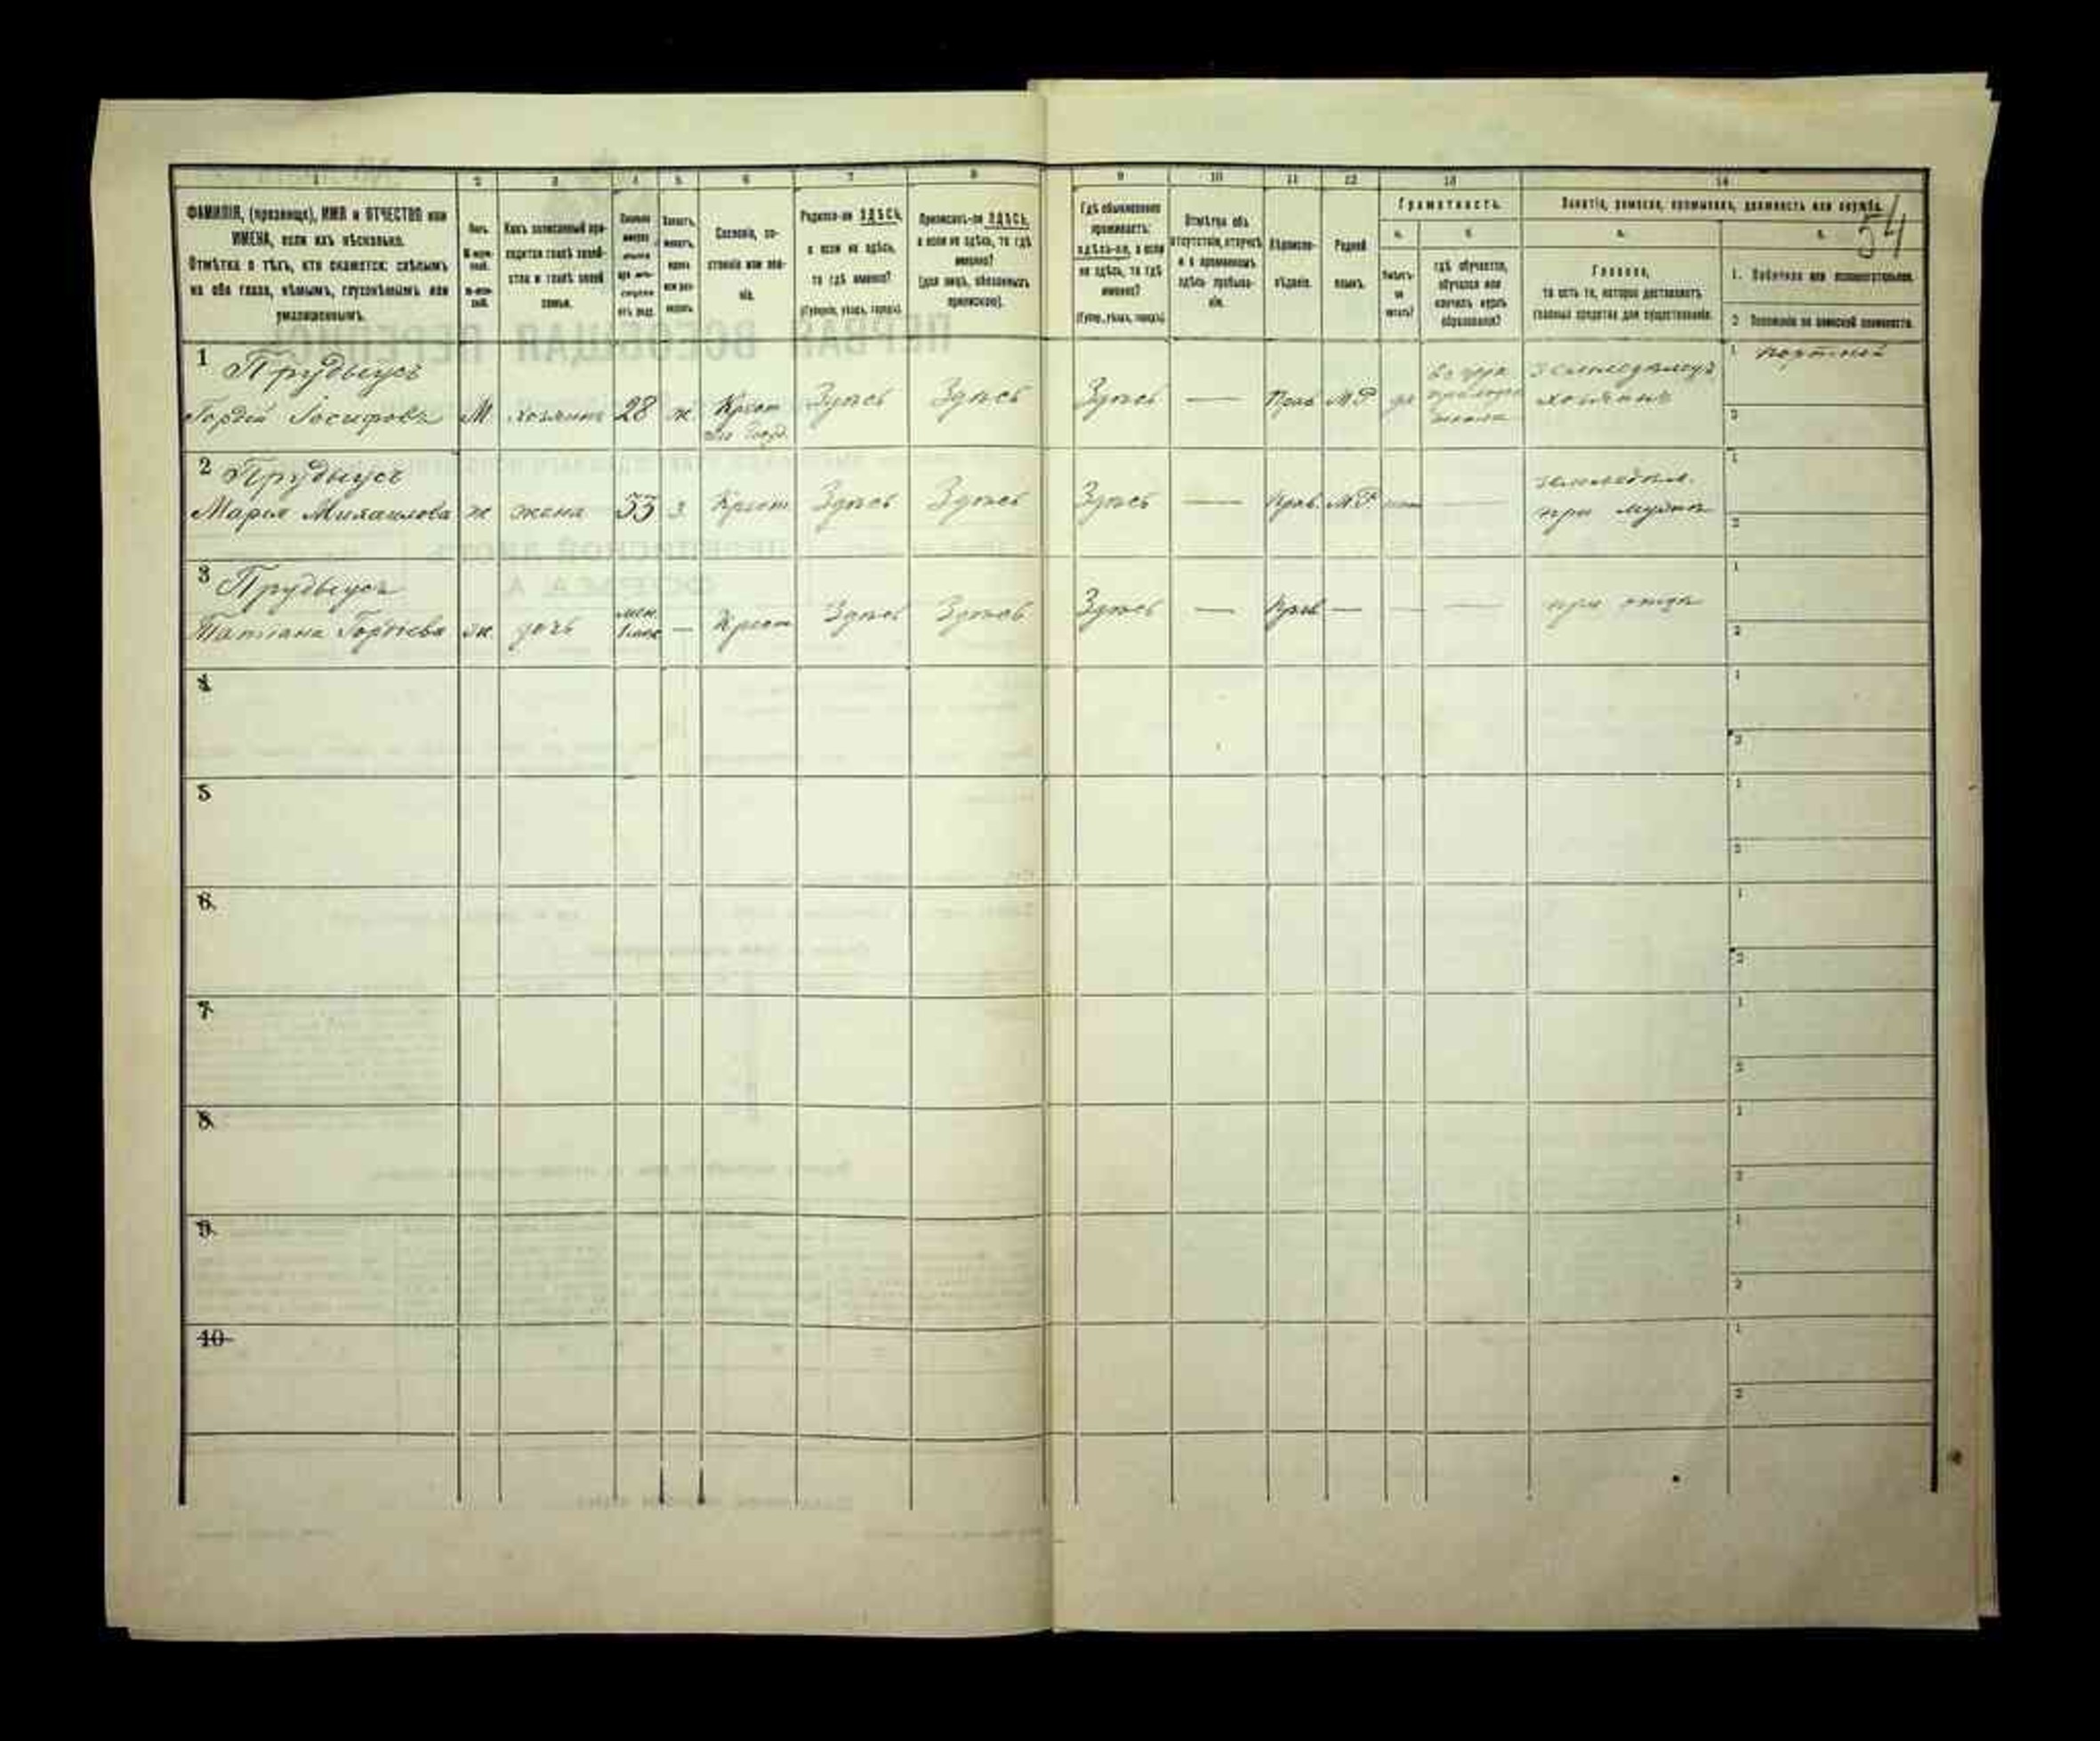 1 2 3 4 5 6 7 8 9 10 11 12 13 14
54
ФАМИЛІЯ, (прозвище), ИМЯ и ОТЧЕСТВО или
ИМЕНА, если ихъ нѣсколько.
Отмѣтка о тѣхъ, кто окажется: слѣпымъ
на оба глаза, нѣмымъ, глухонѣмымъ или
умалишеннымъ.
Полъ.
Какъ записанный при-
ходится главѣ хозяй-
ства и главѣ своей
семьи.
Сословіе, со-
стояніе или зва-
ніе.
Родился-ли ЗДѢСЬ,
а если не здѣсь,
то гдѣ именно?
(Губернія, уѣздъ, городъ).
Приписанъ-ли ЗДѢСЬ,
а если не здѣсь, то гдѣ
именно?
(для лицъ, обязанныхъ
припискою).
Гдѣ обыкновенно
проживаетъ:
здѣсь-ли, а если
не здѣсь, то гдѣ
именно?
(Губер., уѣздъ, городъ).
Отмѣтка объ
отсутствіи, отлучкѣ
и о временномъ
здѣсь пребыва-
ніи.
Вѣроиспо-
вѣданіе.
Родной
языкъ.
Грамотность.
а.
Умѣетъ-
ли
читать?
б.
гдѣ обучается,
обучался или
кончилъ курсъ
образованія?
Занятіе, ремесло, промыселъ, должность или служба.
а.
Главное,
то есть то, которое доставляетъ
главныя средства для существованія.
б.
1. Побочное или вспомогательное.
2. Положеніе по воинской повинности.
1 Прудыусъ
Гордей Іосифовъ М. хозяинъ 28 ж. Крест Здѣсь Здѣсь Здѣсь — Прав М.Р. да
земледѣлецъ
хозяинъ
1 портной
2
2 Прудыусъ
Марья Михаилова ж жена з. Крест Здѣсь Здѣсь Здѣсь — Прав. М.Р. —
земледѣл.
при мужѣ
1
2
3 Прудыусъ
Татіана Гордѣева ж. дочь мен. — Крест Здѣсь Здѣсь Здѣсь — Прав — — — при отцѣ
1
2
4 1
2
5 1
2
6. 1
2
7. 1
2
8. 1
2
9. 1
2
10 1
2